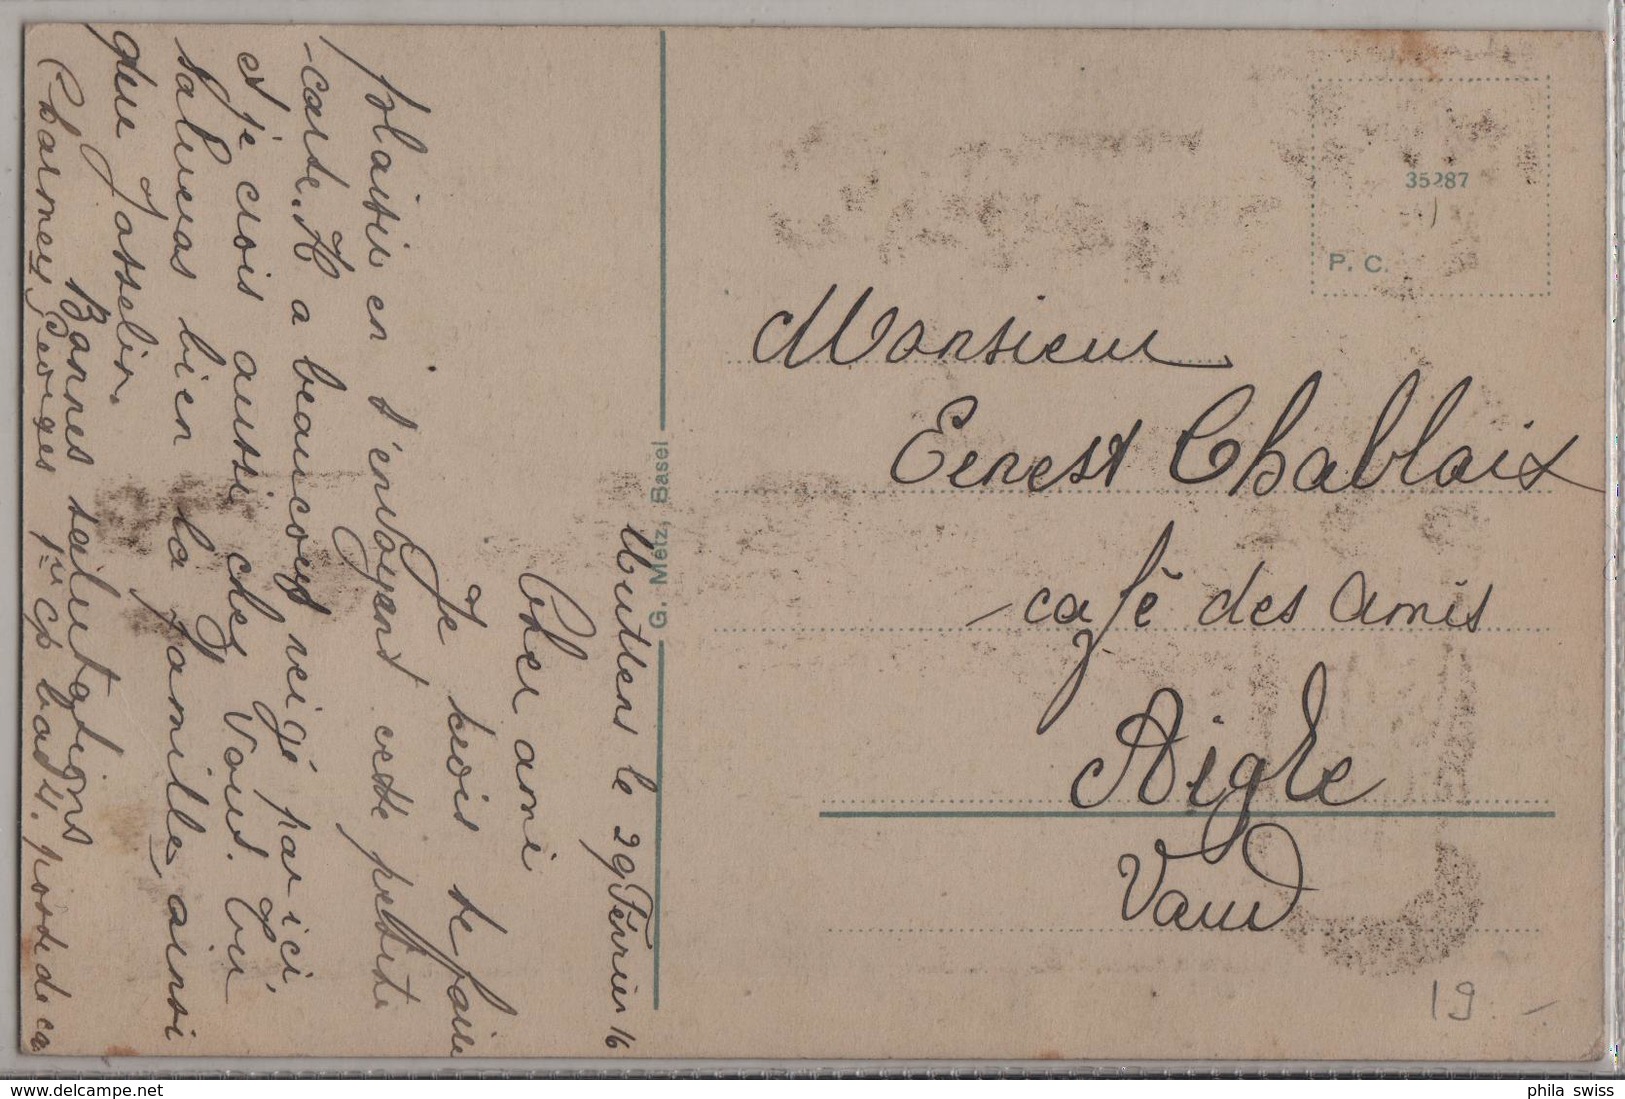 Muttens le 29 Février 16
Cher ami
Je te faire
plaisir en t'envoyant cette petite
-carte. Il a beaucoup neigé par ici,
et je crois aussi chez Vous. Tu
salueras bien la famille, ainsi
que Josselin.
Bonnes salutations
Georges 1re cp bat 4. poste de ca
G. Metz, Basel
35287
P. C.
Monsieur
Ernest Chablaix
-café des Amis
Aigle
Vaud
19.-
delcampe.net
phila_swiss